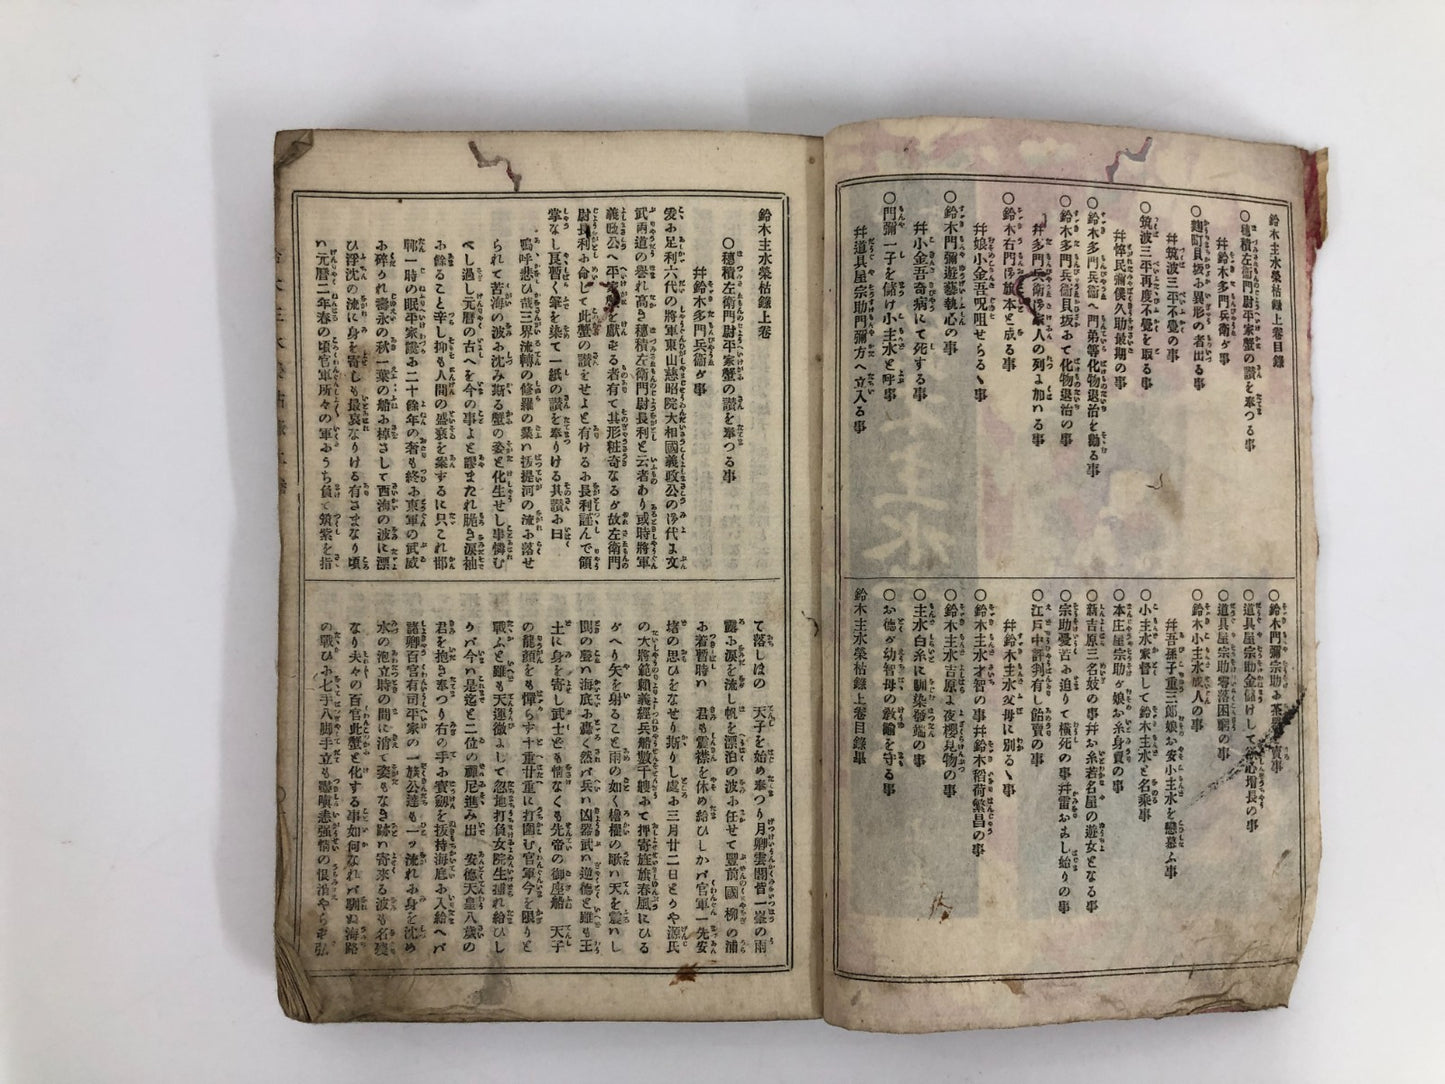 鈴木主水榮枯録上卷目録
〇穗積左衞門尉平家蟹の讃を奉つる事
幷鈴木多門兵衛ヶ事
〇麹町貝坂ふ異形の者出る事
幷筑波三平不覺の事
〇筑波三平再度不覺を取る事
幷悴民彌僕久助最期の事
〇鈴木多門兵衞へ門弟等化物退治を勧る事
〇鈴木多門兵衞貝坂ふて化物退治の事
幷多門兵衞御家人の列よ加ハる事
〇鈴木右門御旗本と成る事
幷娘小金吾呪咀せらるゝ事
〇鈴木門彌遊藝執心の事
幷小金吾奇病にて死する事
〇門彌一子を儲け小主水と呼事
幷道具屋宗助門彌方へ立入る事
〇鈴木門彌宗助ふ茶器を賣事
〇道具屋宗助金儲けして慾心增長の事
〇道具屋宗助零落困窮の事
〇鈴木小主水成人の事
幷吾孫子重三郎娘お安小主水を戀慕ふ事
〇小主水家督して鈴木主水と名乘事
〇本庄屋宗助ヶ娘お糸身賣の事
〇新吉原三名妓の事幷お糸若名屋の遊女となる事
〇宗助憂苦ふ迫りて橫死の事幷雷おこし始りの事
〇江戸中評判有し飴賣の事
幷鈴木主水父母に別るゝ事
〇鈴木主水才智の事幷鈴木稻荷繁昌の事
〇鈴木主水吉原よ夜櫻見物の事
〇主水白糸に馴染發端の事
〇お德ヶ幼智母の敎諭を守る事
鈴木主水榮枯錄上卷目錄畢
鈴木主水榮枯錄上卷
〇穗積左衞門尉平家蟹の讃を奉つる事
幷鈴木多門兵衞ヶ事
爰ふ足利六代の將軍東山慈昭院大相國義政公の御代よ文
武兩道の譽れ高き穗積左衞門尉長利と云者あり或時將軍
義政公へ平家蟹を獻ずる者有て其形粧奇なるヶ故左衞門
尉長利ふ命じて此蟹の讃をせよと有けるふ長利謹んで領
掌なし良暫く筆を染て一紙の讃を奉りける其讃ふ曰
嗚呼悲ひ哉三界流轉の修羅の業ハ抜提河の流ふ落せ
られて苦海の波ふ沈み斯る蟹の姿と化生せし事憐む
べし過し元暦の古へを今の事よと謬またれ脆き涙袖
ふ餘ること辛し抑も人間の盛衰を案するに只これ邯
鄲一時の眠平家纔ふ二十餘年の奢も終ふ東軍の武威
ふ碎りれ壽永の秋一葉の船ふ棹さして西海の波に漂
ひ浮沈の流に身を寄しも最哀なりける有さまなり頃
ハ元暦二年春の頃官軍所々の軍ふうち負て筑紫を指
て落しほの　天子を始め奉つり月卿雲閣皆一峯の雨
露ふ涙を流し帆を漂泊の波ふ任せて豐前國柳の浦
ふ若暫時ハ　君も震襟を休め給ひしかバ官軍一先安
堵の思ひをなせり斯りし處ふ三月廿二日とりや源氏
の大將範賴義經兵船數千艘ふて押寄旌旗春風にひる
ヶへり矢を射ること雨の如く櫓櫂の歌ハ天を震ハし
鬨の聲ハ海底ふ轟く然バ兵ハ凶器武ハ逆德と雖も王
土に身を寄し武士とも情なくも先帝の御座船　天子
の龍顏をも憚らず十重廿重に打圍む官軍今を限りと
戰ふと雖も天運微よして忽地打負女院生捕れ給ひし
りバ今ハ是迄と二位の禪尼進み出　安德天皇八歲の
君を抱き奉つり右の手ふ寶劔を抜持海底ふ入給へバ
諸卿百官有司平家の一族公達も一ッ流れふ身を沈め
水の泡立時の間に消て姿もなき跡ハ寄來る波も名殘
なり夫々の百官此蟹と化する事如何なれバ馴ぬ海路
の戰ひふ七手八脚手立も